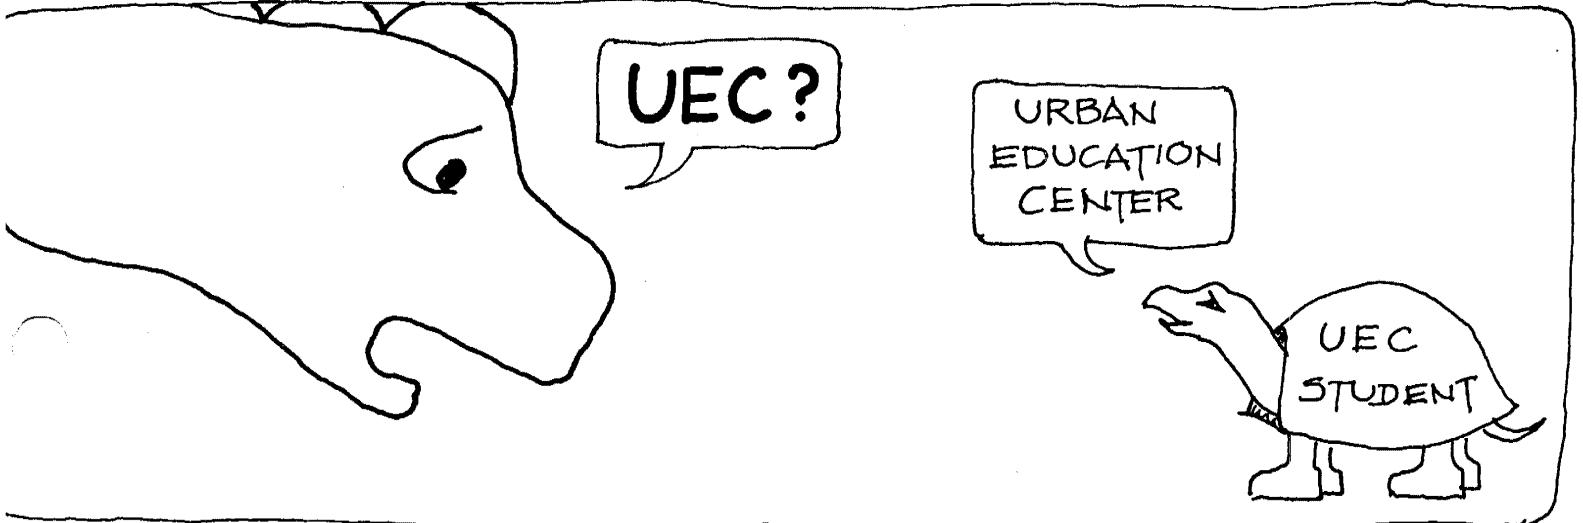 UEC?
URBAN
EDUCATION
CENTER
UEC
STUDENT